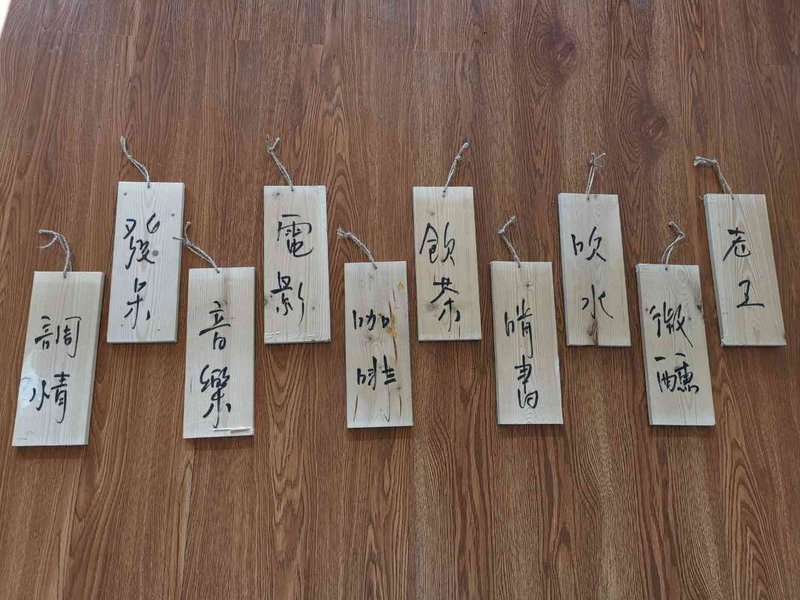 調情
發呆
音樂
電影
咖啡
飲茶
啃書
吹水
微醺
老王